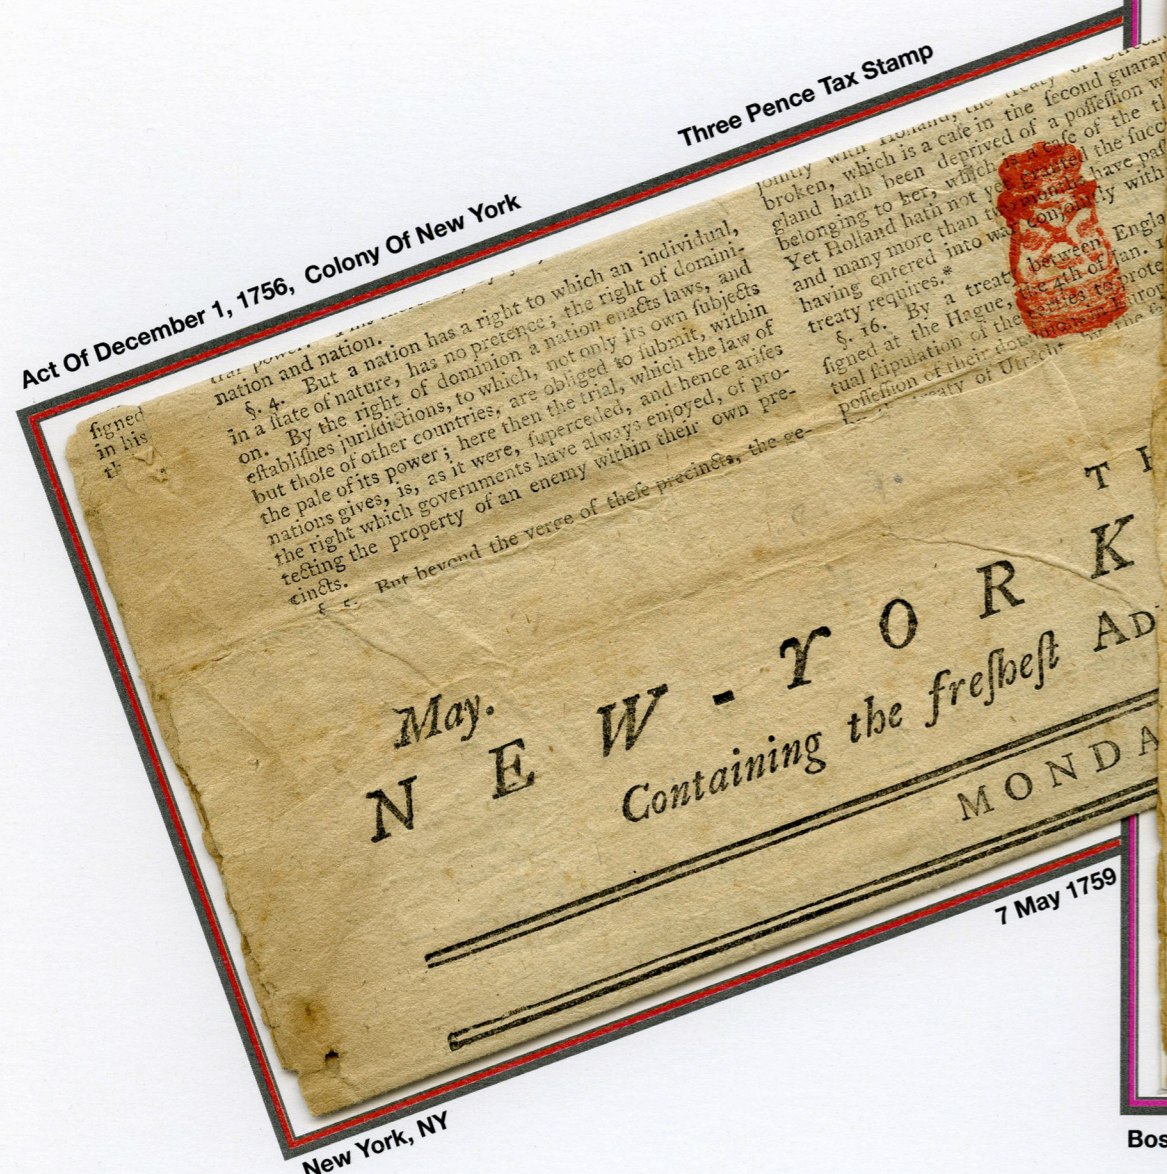 Three Pence Tax Stamp
Act Of December 1, 1756, Colony Of New York
nation and nation.
§. 4. But a nation has a right to which an individual,
in a ſtate of nature, has no pretence; the right of domini-
on. By the right of dominion a nation enacts laws, and
eſtabliſhes juriſdictions, to which, not only its own ſubjects
but thoſe of other countries, are obliged to ſubmit, within
the pale of its power; here then the trial, which the law of
nations gives, is, as it were, ſuperceded, and hence ariſes
the right which governments have always enjoyed, of pro-
tecting the property of an enemy within their own pre-
cincts.
§. 5. But beyond the verge of theſe precincts, the ge-
ſigned
in his
jointly with Holland, the treaty of
broken, which is a caſe in the ſecond guaran
gland hath been deprived of a poſſeſſion w
belonging to her, which is a caſe of the
Yet Holland hath not yet granted the ſucc
and many more than months have paſ
having entered into war conjointly with
treaty requires.*
§. 16. By a treaty between Engla
ſigned at the Hague, the 4th of Jan.
tual ſtipulation of the prote
poſſeſſion of their
treaty of Utrecht
May.
T H
N E W - Y O R K
Containing the freſheſt AD
MONDA
7 May 1759
New York, NY
Bos